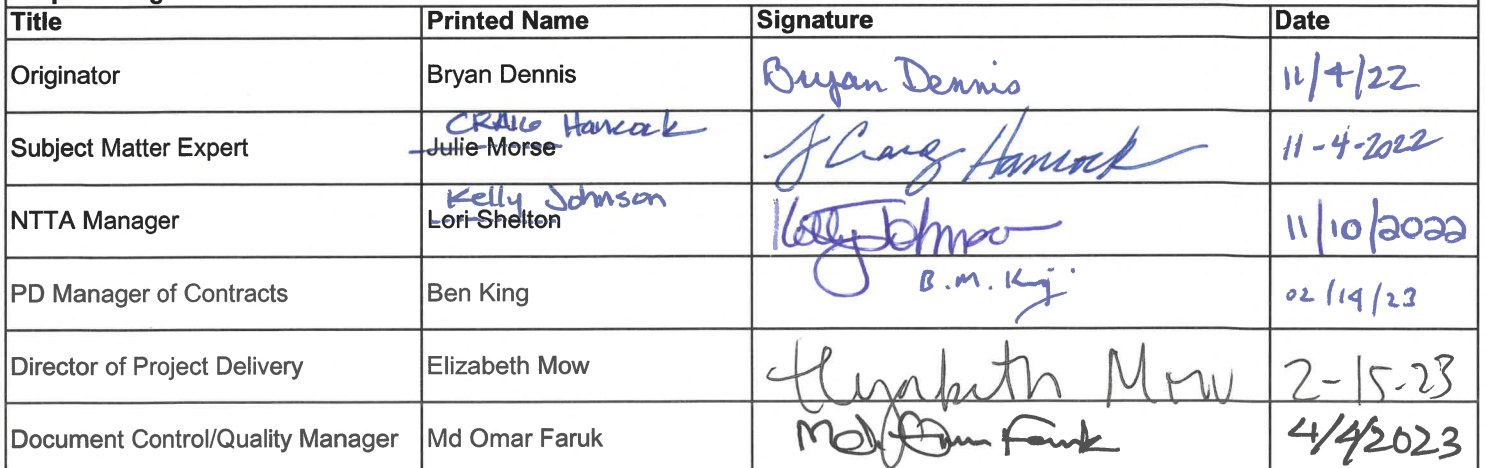 Title Printed Name Signature Date
Originator Bryan Dennis Bryan Dennis 11/4/22
CRAIG Hancock
Subject Matter Expert Julie Morse J Craig Hancock 11-4-2022
Kelly Johnson
NTTA Manager Lori Shelton Kelly Johnson 11/10/2022
PD Manager of Contracts Ben King B.M. King 02/14/23
Director of Project Delivery Elizabeth Mow Elizabeth Mow 2-15-23
Document Control/Quality Manager Md Omar Faruk Md Omar Faruk 4/4/2023